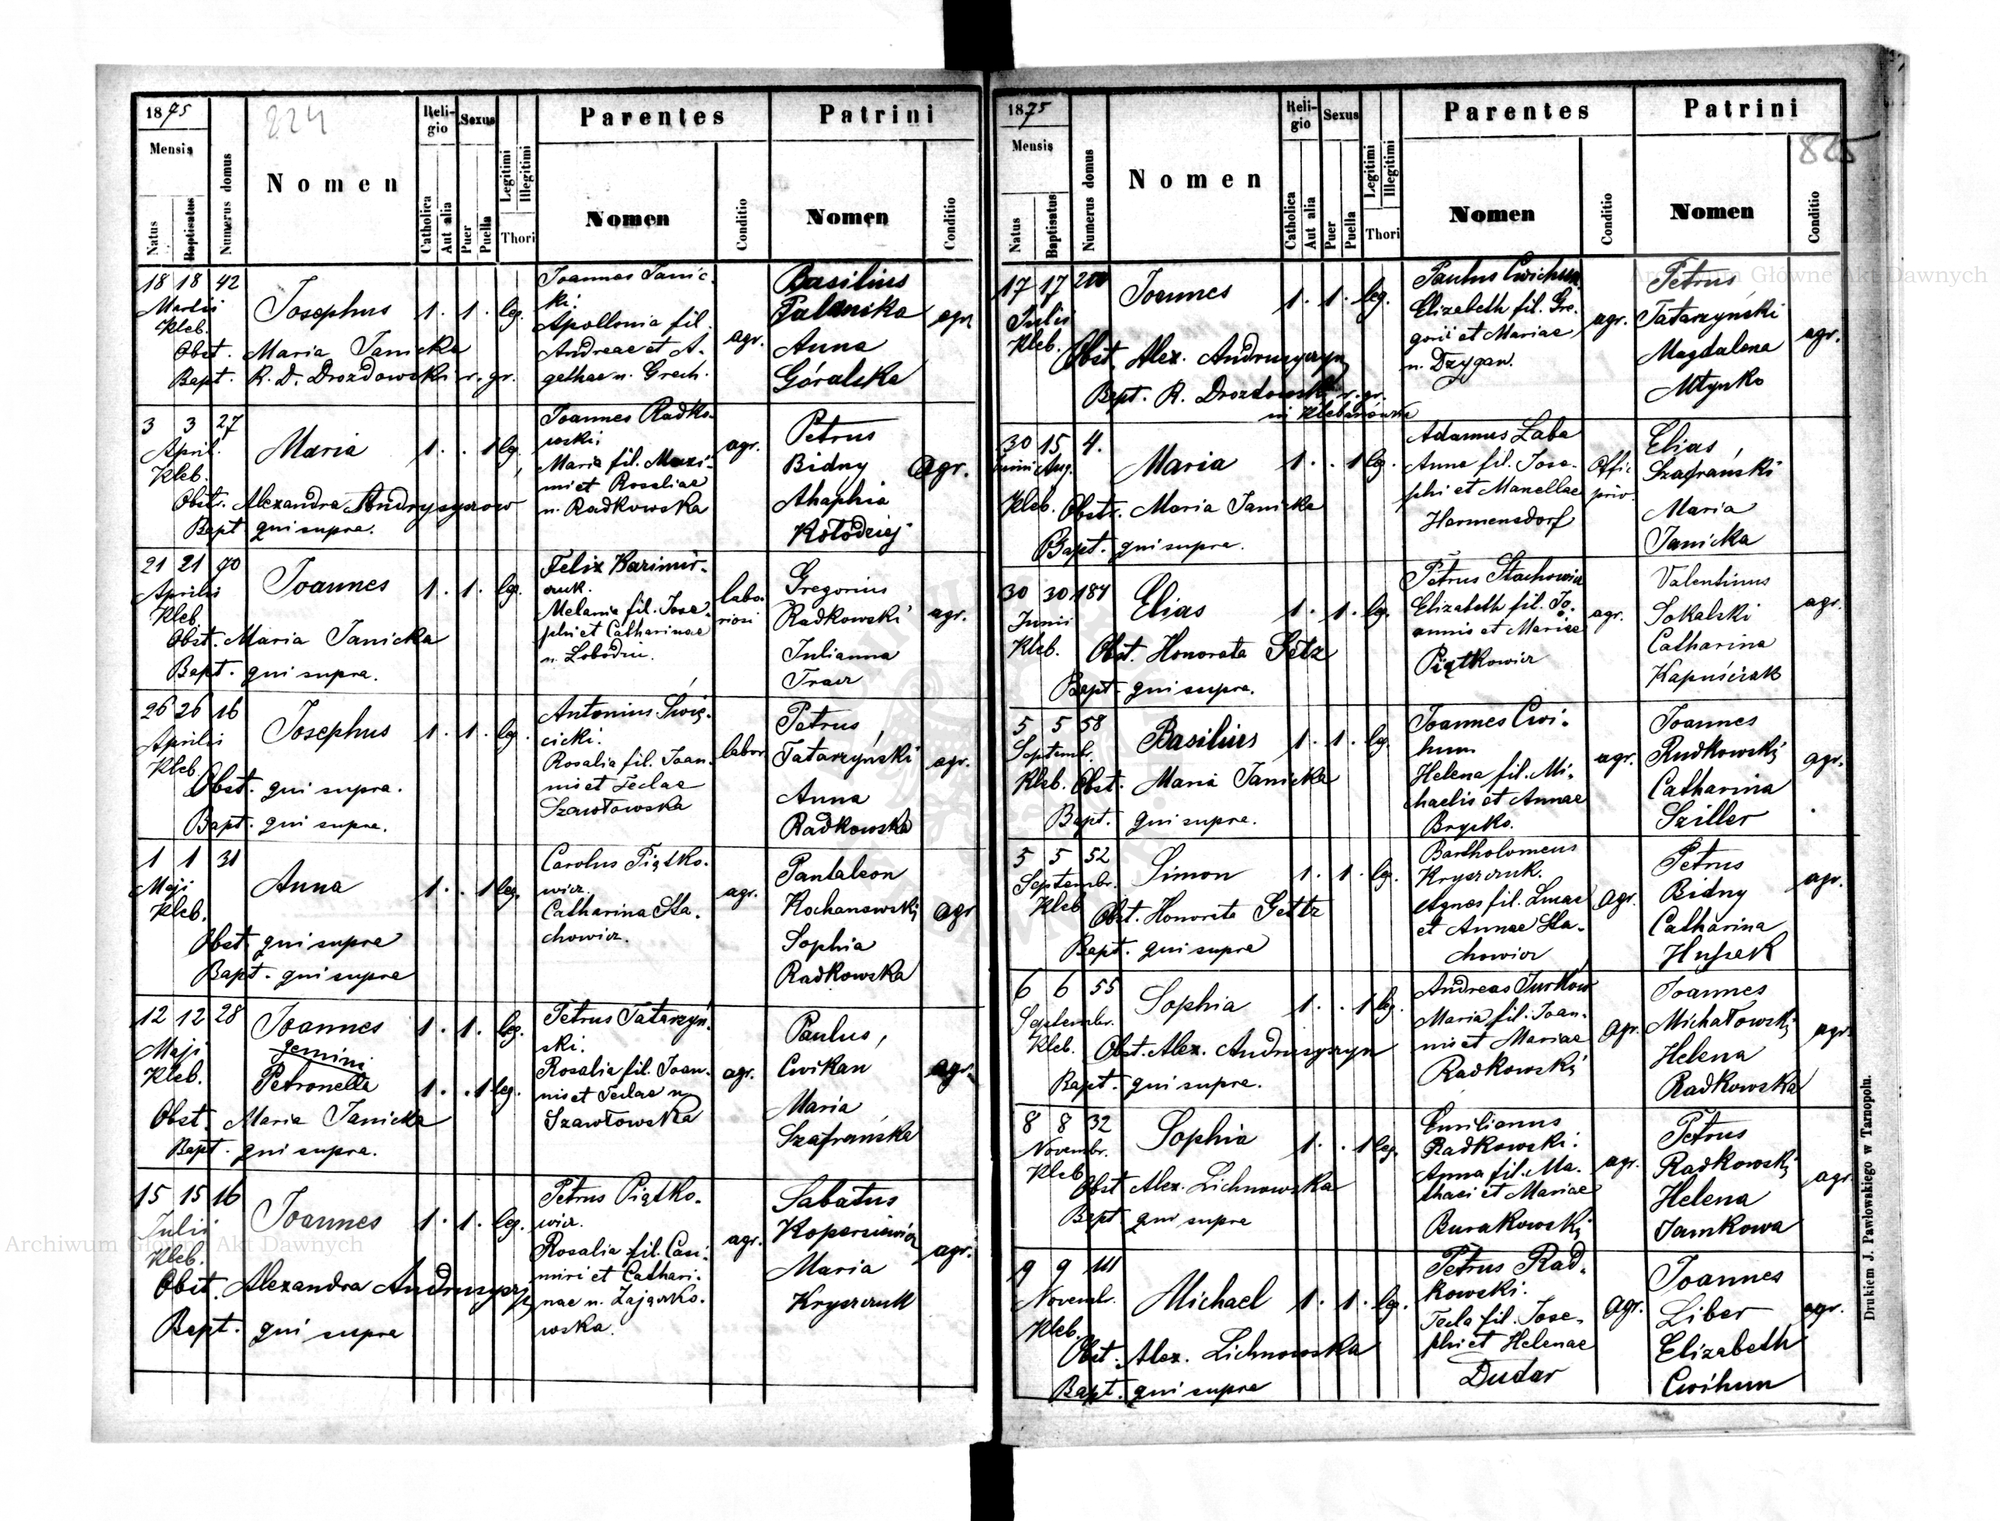 1875
224
Mensis
Natus
Baptisatus
Numerus domus
Nomen
Religio
Catholica
Aut alia
Sexus
Puer
Puella
Legitimi
Illegitimi
Thori
Parentes
Nomen
Conditio
Patrini
Nomen
Conditio
18 18 42
Martii
Kleb.
Josephus 1. 1. leg.
Obst. Maria Janicka
Bapt. R. D. Drozdowski r. gr.
Joannes Janic-
ki.
Apollonia fil.
Andreae et A-
gathae n. Grech.
agr.
Basilius
Anna
Góralska
agr.
3 3 27
April.
Kleb.
Maria 1. . 1 leg.
Obstr. Alexandra Andryszczow
Bapt qui supra.
Joannes Radko-
wski
Maria fil. Maxi-
mi et Rosaliae
n. Radkowska
agr.
Petrus
Bidny
Ahaphia
Kołodziej
agr.
21 21 90
Aprilis
Kleb.
Joannes 1. 1. leg.
Obst. Maria Janicka
Bapt. qui supra.
Felix Kazimir-
czuk.
Melania fil. Jose-
phi et Catharinae
labo-
riosi
Gregorius
Radkowski
Julianna
Tracz
agr.
26 26 16
Aprilis
Kleb.
Josephus 1. 1. leg.
Obst. qui supra.
Bapt. qui supra.
Antonius Świę-
cicki.
Rosalia fil. Joan-
nis et Teclae
Szawłowska
labor.
Petrus
Tatarzyński
Anna
Radkowska
agr.
1 1 31
Maji
Kleb.
Anna 1. . 1 leg.
Obst. qui supra
Bapt. qui supra
Carolus Piątko-
wicz.
Catharina Sta-
chowicz.
agr.
Pantaleon
Kochanowski
Sophia
Radkowska
agr
12 12 28
Maji
Kleb.
Joannes 1. 1. leg.
gemini
Petronella 1. . 1 leg.
Obst. Maria Janicka
Bapt. qui supra.
Petrus Tatarzyń-
ski.
Rosalia fil. Joan-
nis et Teclae n
Szawłowska
agr.
Paulus
Cwikan
Maria
Szafrańska
agr.
15 15 16
Julii
Kleb.
Joannes 1. 1. leg.
Obst. Alexandra
Bapt. qui supra
Petrus Piątko-
wicz.
Rosalia fil. Casi-
miri et Cathari-
nae n. Zajączko-
wska.
agr.
Sabatus
Maria
Kryszczuk
agr.
1875
825
Mensis
Natus
Baptisatus
Numerus domus
Nomen
Religio
Catholica
Aut alia
Sexus
Puer
Puella
Legitimi
Illegitimi
Thori
Parentes
Nomen
Conditio
Patrini
Nomen
Conditio
17 17
Julii
Kleb.
Joannes 1. 1. leg.
Obst. Alex. Andruszczyn
Bapt. R. Drozdowski r. gr.
in Klebanówka
Paulus
Elizabeth fil. Gre-
gorii et Mariae
n. Dzygan.
agr.
Petrus
Tatarzyński
Magdalena
Młynko
agr.
30 15 4.
Junii Aug.
Kleb.
Maria 1. . 1 leg.
Obstr. Maria Janicka
Bapt. qui supra.
Adamus Laba
Anna fil. Jose-
phi et Manellae
Harmensdorf
Offic
priv.
Elias
Szafrański
Maria
Janicka
30 30 187
Junii
Kleb.
Elias 1. 1. leg.
Obst. Honorata Getz
Bapt. qui supra.
Petrus Stachowicz
Elizabeth fil. Jo-
annis et Mariae
Piątkowicz
agr.
Valentinus
Sokalski
Catharina
Kapuściak
agr.
5 5 58
Septemb.
Kleb.
Basilius 1. 1. leg.
Obst. Maria Janicka
Bapt. qui supra.
Joannes Cwi-
hun
Helena fil. Mi-
chaelis et Annae
Brycko.
agr.
Joannes
Radkowski
Catharina
Sziller
agr.
5 5 52
Septembr.
Kleb
Simon 1. 1. leg.
Obst. Honorata Gettz
Bapt. qui supra
Bartholomeus
Kryszczuk.
Agnes fil. Lucae
et Annae Sta-
chowicz
agr.
Petrus
Bidny
Catharina
Husak
agr.
6 6 55
Septembr.
Kleb.
Sophia 1. . 1 leg.
Obst. Alex. Andruszczyn
Bapt. qui supra.
Andreas Jurkow
Maria fil. Joan-
nis et Mariae
Radkowski
agr.
Joannes
Michałowski
Helena
Radkowska
agr.
8 8 32
Novembr.
Kleb.
Sophia 1. . 1 leg.
Obst Alex. Lichnowska
Bapt qui supra
Emilianus
Radkowski.
Anna fil. Ma-
thaei et Mariae
Burakowski
agr.
Petrus
Radkowski
Helena
Jamkowa
agr.
9 9 111
Novemb.
Kleb.
Michael 1. 1. leg.
Obst. Alex. Lichnowska
Bapt. qui supra
Petrus Rad-
kowski.
Tecla fil. Jose-
phi et Helenae
Dudar
agr.
Joannes
Liber
Elizabeth
Cwihun
agr.
Drukiem J. Pawłowskiego w Tarnopolu.
Archiwum Główne Akt Dawnych
Archiwum Główne Akt Dawnych